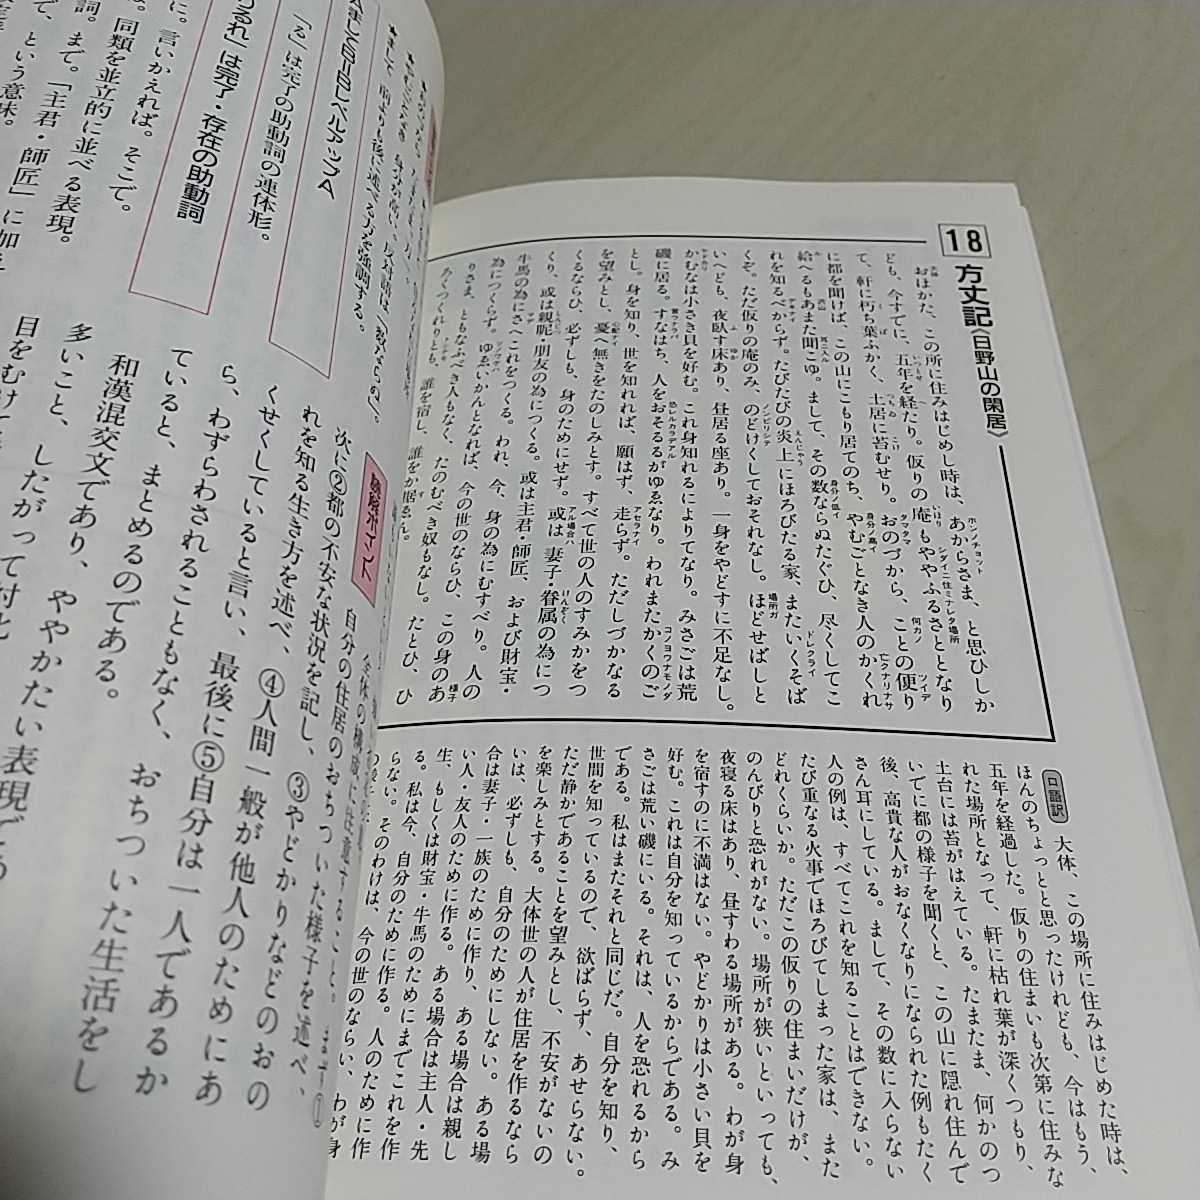 18 方丈記《日野山の閑居》
おほかた、この所に住みはじめし時は、あからさま、と思ひしか
ども、今すでに、五年を経たり。仮りの庵もややふるさととなり
て、軒に朽ち葉ふかく、土居に苔むせり。おのづから、ことの便り
に都を聞けば、この山にこもり居てのち、やむごとなき人のかくれ
給へるもあまた聞こゆ。まして、その数ならぬたぐひ、尽くしてこ
れを知るべからず。たびたびの炎上にほろびたる家、またいくそば
くぞ。ただ仮りの庵のみ、のどけくしておそれなし。ほどせばしと
いへども、夜臥す床あり、昼居る座あり。一身をやどすに不足なし。
かむなは小さき貝を好む。これ身知れるによりてなり。みさごは荒
磯に居る。すなはち、人をおそるるがゆゑなり。われまたかくのご
とし。身を知り、世を知れれば、願はず、走らず。ただしづかなる
を望みとし、憂へ無きをたのしみとす。すべて世の人のすみかをつ
くるならひ、必ずしも、身のためにせず。或は妻子・眷属の為につ
くり、或は親昵・朋友の為につくる。或は主君・師匠、および財宝・
牛馬の為にさへこれをつくる。われ、今、身の為にむすべり。人の
為につくらず。ゆゑいかんとなれば、今の世のならひ、この身のあ
りさま、ともなふべき人もなく、たのむべき奴もなし。たとひ、ひ
ろくつくれりとも、誰を宿し、誰をか居ゑん。
口語訳 大体、この場所に住みはじめた時は、
ほんのちょっとと思ったけれども、今はもう、
五年を経過した。仮りの住まいも次第に住みな
れた場所となって、軒に枯れ葉が深くつもり、
土台には苔がはえている。たまたま、何かのつ
いでに都の様子を聞くと、この山に隠れ住んで
後、高貴な人がおなくなりになられた例もたく
さん耳にしている。まして、その数に入らない
人の例は、すべてこれを知ることはできない。
たび重なる火事でほろびてしまった家は、また
どれくらいか。ただこの仮りの住まいだけが、
のんびりと恐れがない。場所が狭いといっても、
夜寝る床はあり、昼すわる場所がある。わが身
を宿すのに不満はない。やどかりは小さい貝を
好む。これは自分を知っているからである。み
さごは荒い磯にいる。それは、人を恐れるから
である。私はまたそれと同じだ。自分を知り、
世間を知っているので、欲ばらず、あせらない。
ただ静かであることを望みとし、不安がないの
を楽しみとする。大体世の人が住居を作るなら
いは、必ずしも、自分のためにしない。ある場
合は妻子・一族のために作り、ある場合は親し
い人・友人のために作る。ある場合は主人・先
生、もしくは財宝・牛馬のためにまでこれを作
る。私は今、自分のために作る。人のために作
らない。そのわけは、今の世のならい、わが身
「る」は完了の助動詞の連体形。
るれ」は完了・存在の助動詞
に。言いかえれば。そこで。
詞。まで。「主君・師匠」に加え
同類を並立的に並べる表現。
で、という意味。
自分の住居のおちついた様子を述べ、
次に②都の不安な状況を記し、③やどかりなどのおの
れを知る生き方を述べ、④人間一般が他人のためにあ
くせくしていると言い、最後に⑤自分は一人であるか
ら、わずらわされることもなく、おちついた生活をし
ていると、まとめるのである。
和漢混交文であり、ややかたい表現であ
多いこと、したがって対と
目をむけて